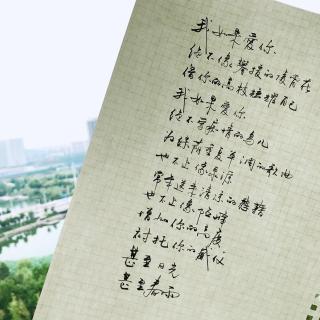 我如果爱你
绝不像攀援的凌霄花
借你的高枝炫耀自己
我如果爱你
绝不学痴情的鸟儿
为绿荫重复单调的歌曲
也不止像泉源
常年送来清凉的慰藉
也不止像险峰
增加你的高度
衬托你的威仪
甚至日光
甚至春雨